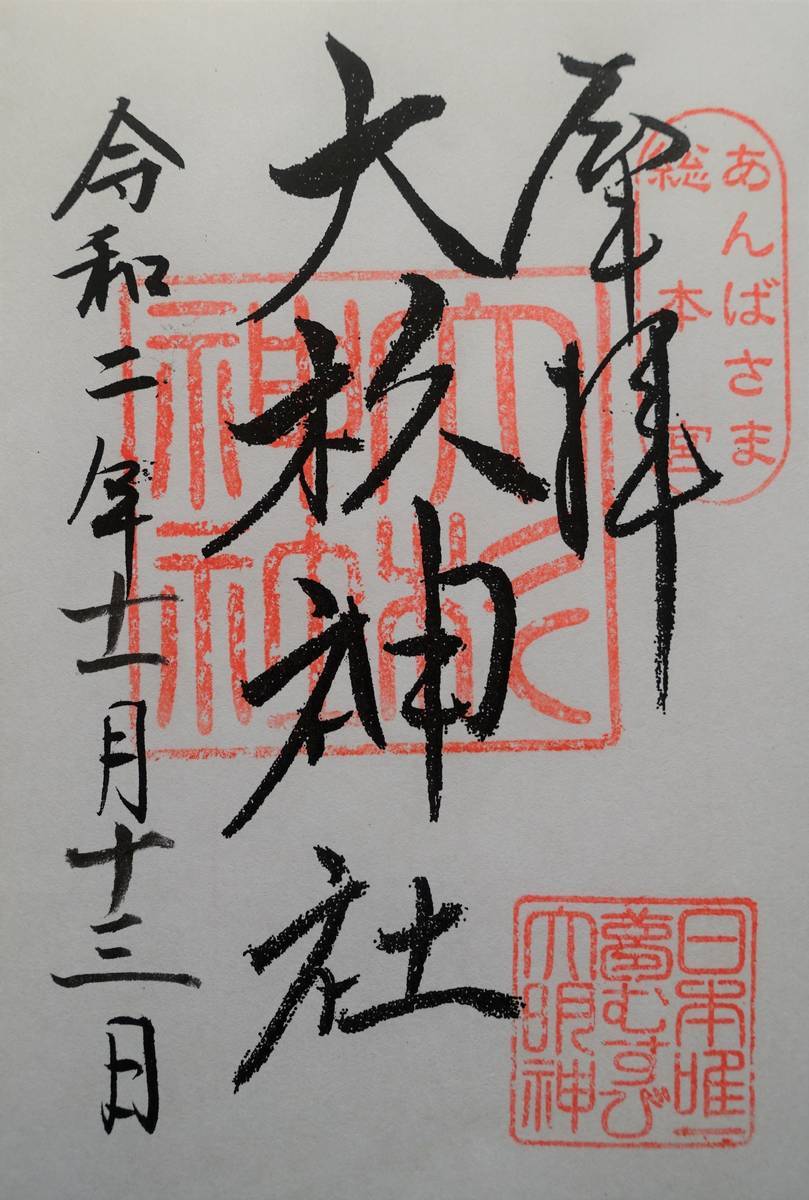 あんばさま
総本宮
奉拝
大杉神社
大杉
神社
令和二年十一月十三日
日本唯一
夢むすび
大明神